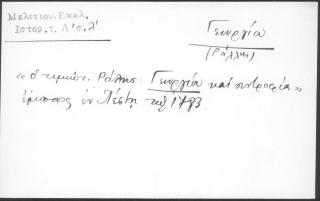 Μελετίου.Εκκλ.
Ιστορ.τ. Α'σ.λ'
Γεωργία
(Ράλλης)
« ὁ τιμιώτ. Ράλλης Γεωργία καὶ συντροφία »
ἔμπορος ἐν Πέστῃ τῷ 1783